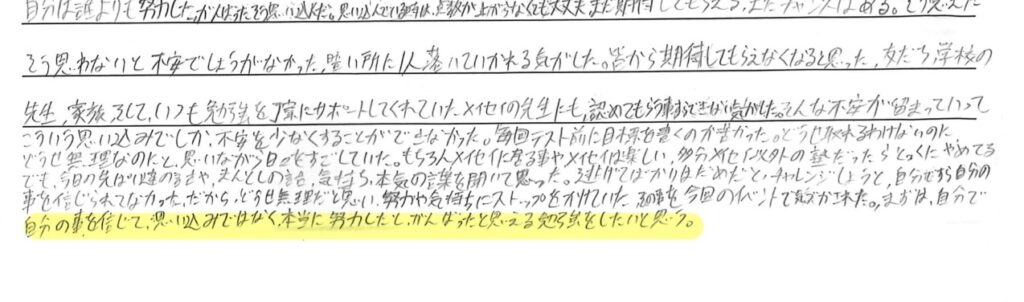 自分は誰よりも努力した。がんばったそう思い込んだ。思い込んでいる時は、点数が上がらなくても大丈夫まだ期待してもらえる、まだチャンスはある。そう思えた
そう思わないと不安でしょうがなかった。暗い所に1人落ちていかれる気がした。皆から期待してもらえなくなると思った。友だち学校の
先生、家族、そして、いつも勉強を丁寧にサポートしてくれていたメイセイの先生にも、認めてもらう事すらできない気がした。そんな不安が留まっていって
こういう思い込みでしか、不安を少なくすることができなかった。毎回テスト前に目標を書くのが苦かった。どうせ取れるわけないのに、
どうせ無理なのにと、思いながら日々をすごしていた。もちろんメイセイに来る事やメイセイは楽しい、多分メイセイ以外の塾だったらとっくにやめてる
でも、今日の先ぱい達の話や、まんとしの話、気持ち、本気の言葉を聞いて思った。逃げてばかりはだめだと、チャレンジしようと、自分ですら自分の
事を信じられてなかった。だから、どうせ無理だと思い、努力や気持ちにストップをかけていた。その事を今回のイベントで気づかされた。まずは、自分で
自分の事を信じて、思い込みではなく、本当に努力したと、がんばったと思える勉強をしたいと思う。